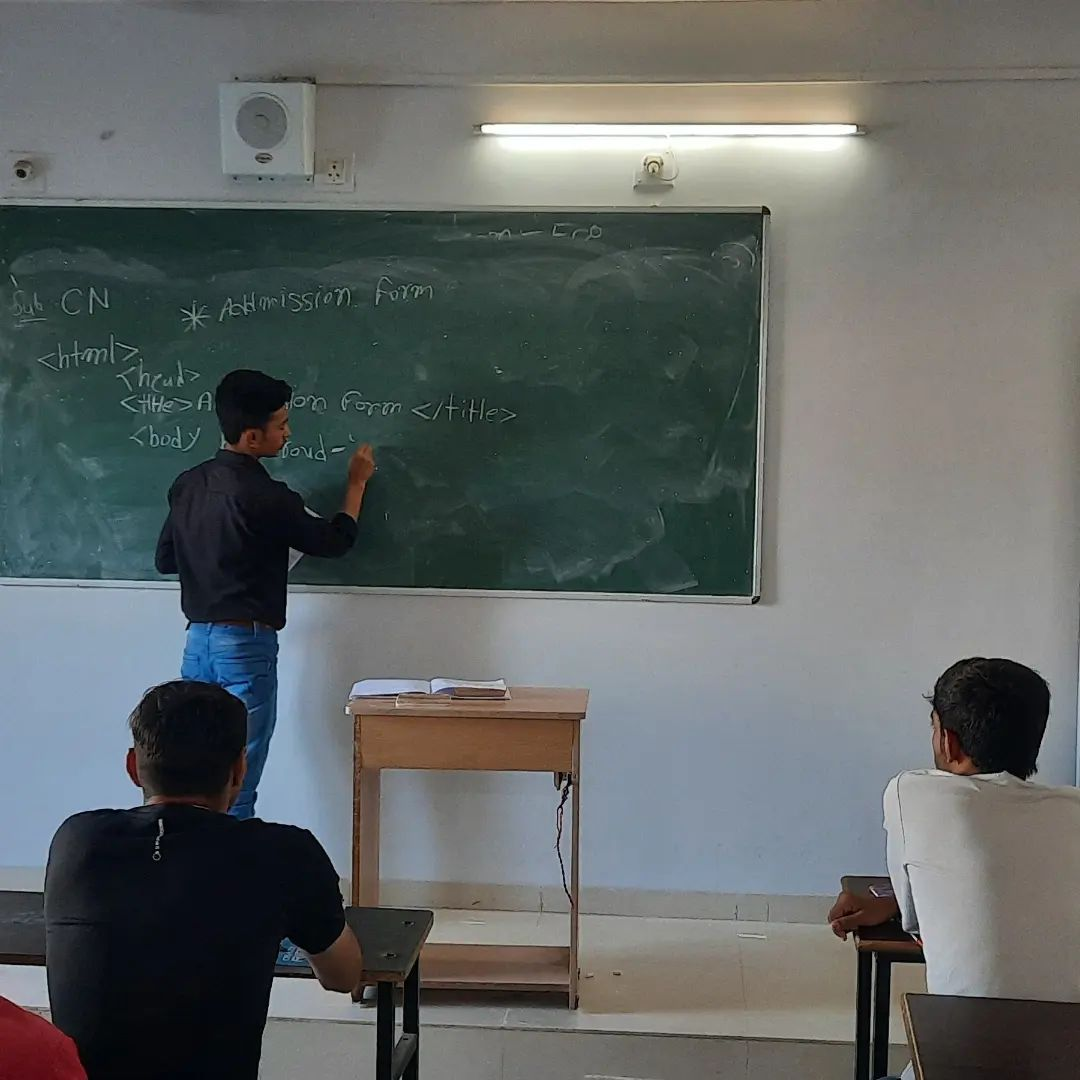 Sub CN
* Admission Form
<html>
<head>
<title> Form </title>
<body